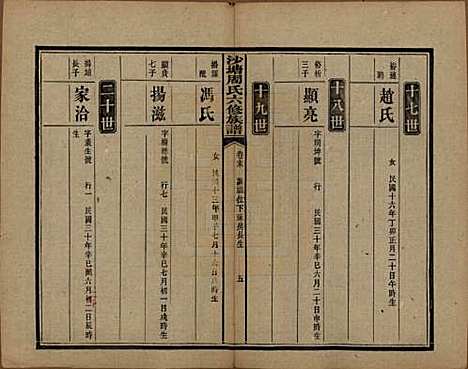 十七世
裕通
聘
趙氏
女 民國十六年丁卯正月二十日午時生
十八世
裕析
三子
顯亮
字 號 行 民國三十年辛巳六月二十日午時生
十九世
沙塘周氏六修族譜
卷末
五
馮氏
女 民國十三年甲子七月十六日 時生
顯貴
七子
揚滋
字 號 行七 民國三十年辛巳七月初一日戌時生
二十世
揚順
長子
家洽
字 生號 行一 民國三十年辛巳閏六月初二日辰時
生